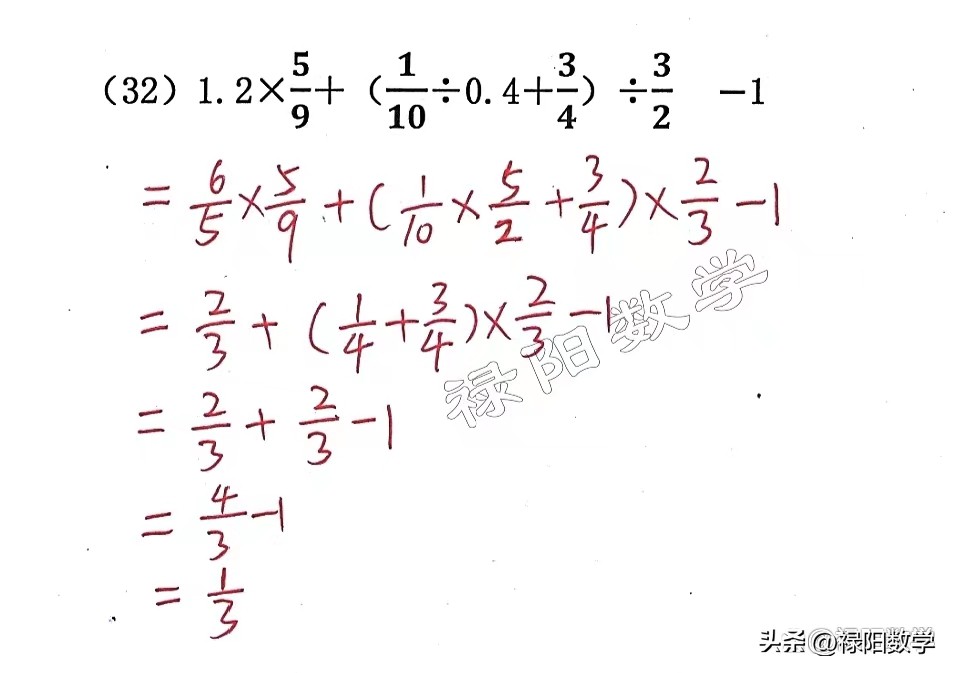 （32）1.2×5/9+（1/10÷0.4+3/4）÷3/2 －1
= 6/5×5/9+(1/10×5/2+3/4)×2/3-1
= 2/3+(1/4+3/4)×2/3-1
= 2/3+2/3-1
= 4/3-1
= 1/3
禄阳数学
头条 @禄阳数学